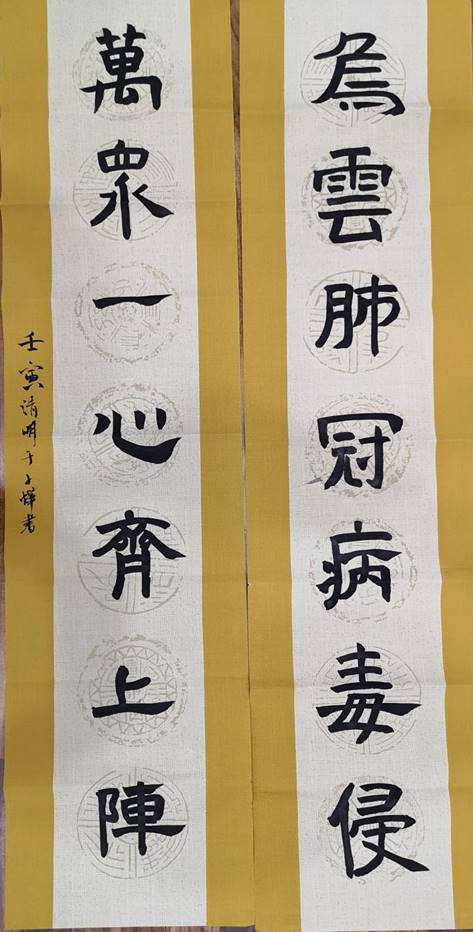 烏雲肺冠病毒侵
萬眾一心齊上陣
壬寅清明于子燁書